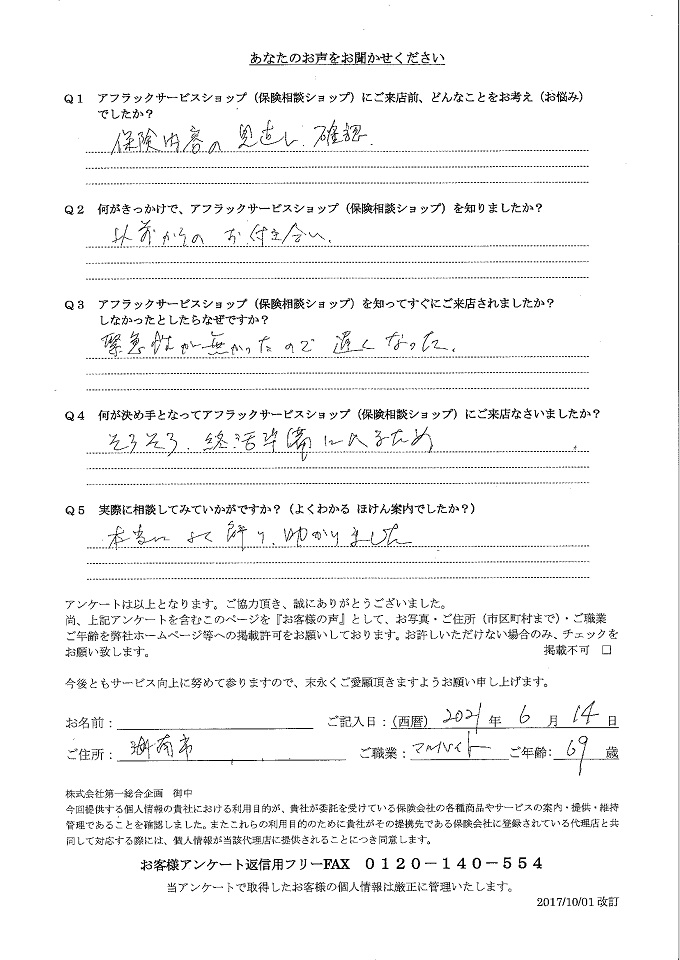 あなたのお声をお聞かせください
Q1 アフラックサービスショップ（保険相談ショップ）にご来店前、どんなことをお考え（お悩み）
でしたか？
保険内容の見直し、確認.
Q2 何がきっかけで、アフラックサービスショップ（保険相談ショップ）を知りましたか？
以前からの お付き合い.
Q3 アフラックサービスショップ（保険相談ショップ）を知ってすぐにご来店されましたか？
しなかったとしたらなぜですか？
緊急性が無かったので 遅くなった.
Q4 何が決め手となってアフラックサービスショップ（保険相談ショップ）にご来店なさいましたか？
そろそろ、終活準備に入るため
Q5 実際に相談してみていかがですか？（よくわかる ほけん案内でしたか？）
本当に よく解り、助かりました
アンケートは以上となります。ご協力頂き、誠にありがとうございました。
尚、上記アンケートを含むこのページを『お客様の声』として、お写真・ご住所（市区町村まで）・ご職業
ご年齢を弊社ホームページ等への掲載許可をお願いしております。お許しいただけない場合のみ、チェックを
お願い致します。 掲載不可 □
今後ともサービス向上に努めて参りますので、末永くご愛顧頂きますようお願い申し上げます。
お名前： ご記入日：（西暦） 2021 年 6 月 14 日
ご住所： 海南市 ご職業： アルバイト ご年齢： 69 歳
株式会社第一総合企画 御中
今回提供する個人情報の貴社における利用目的が、貴社が委託を受けている保険会社の各種商品やサービスの案内・提供・維持
管理であることを確認しました。またこれらの利用目的のために貴社がその提携先である保険会社に登録されている代理店と共
同して対応する際には、個人情報が当該代理店に提供されることにつき同意します。
お客様アンケート返信用フリーFAX 0120－140－554
当アンケートで取得したお客様の個人情報は厳正に管理いたします。
2017/10/01 改訂